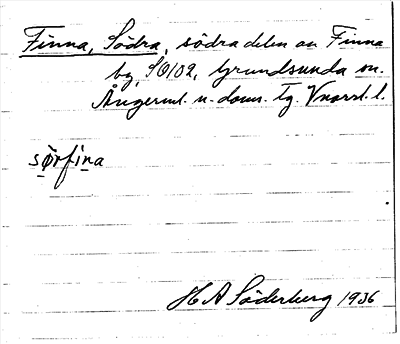 Finna, Södra, södra delen av Finna
by, SO102, Grundsunda sn.
Ångerml. n. doms. Tg. Vnorrl. l.
sørfina
H A Söderberg 1936